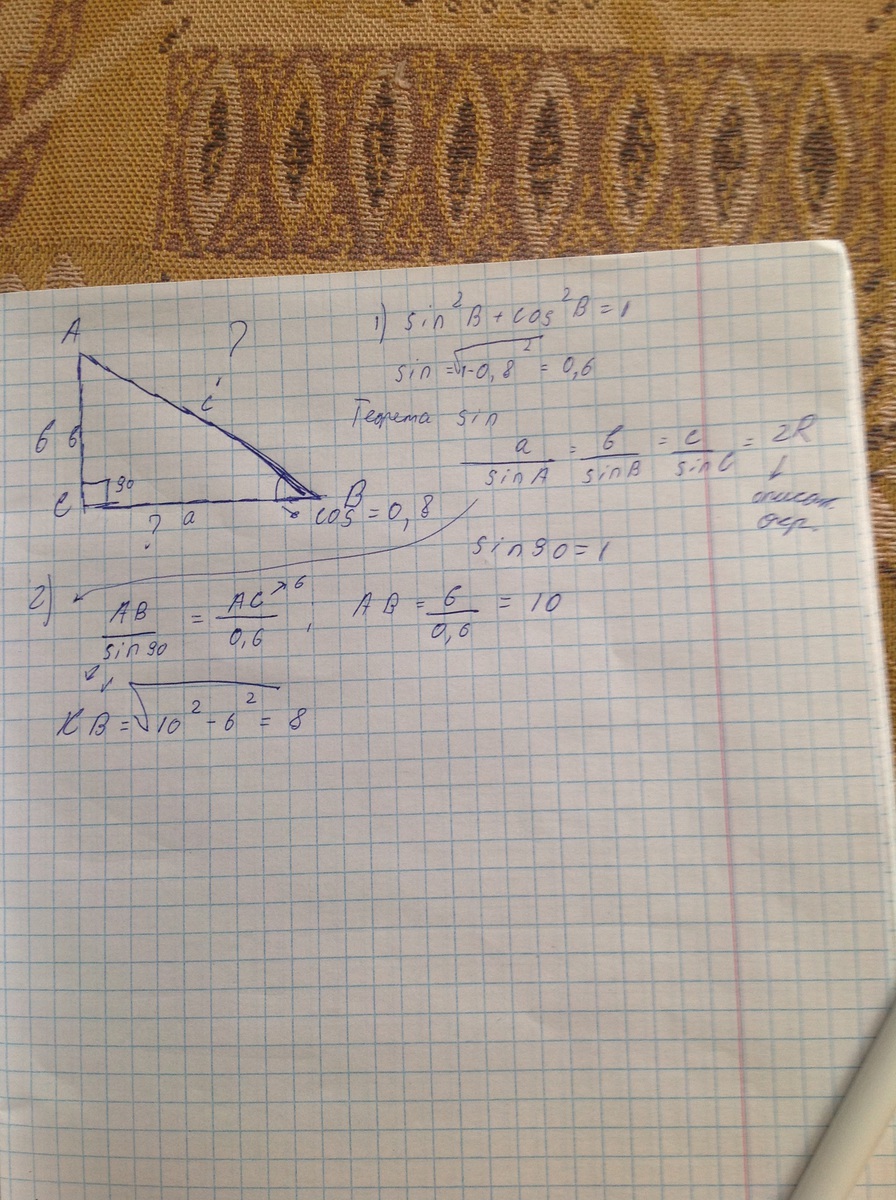 A
?
c
б 6
90
C
? a
B
cos = 0,8
1) sin²B + cos²B = 1
sin = √1-0,8² = 0,6
Теорема sin
a/sinA = b/sinB = c/sinC = 2R
↓
описан.
окр.
sin90=1
2) AB/sin90 = AC→6/0,6 ; AB = 6/0,6 = 10
1
KB = √10² - 6² = 8